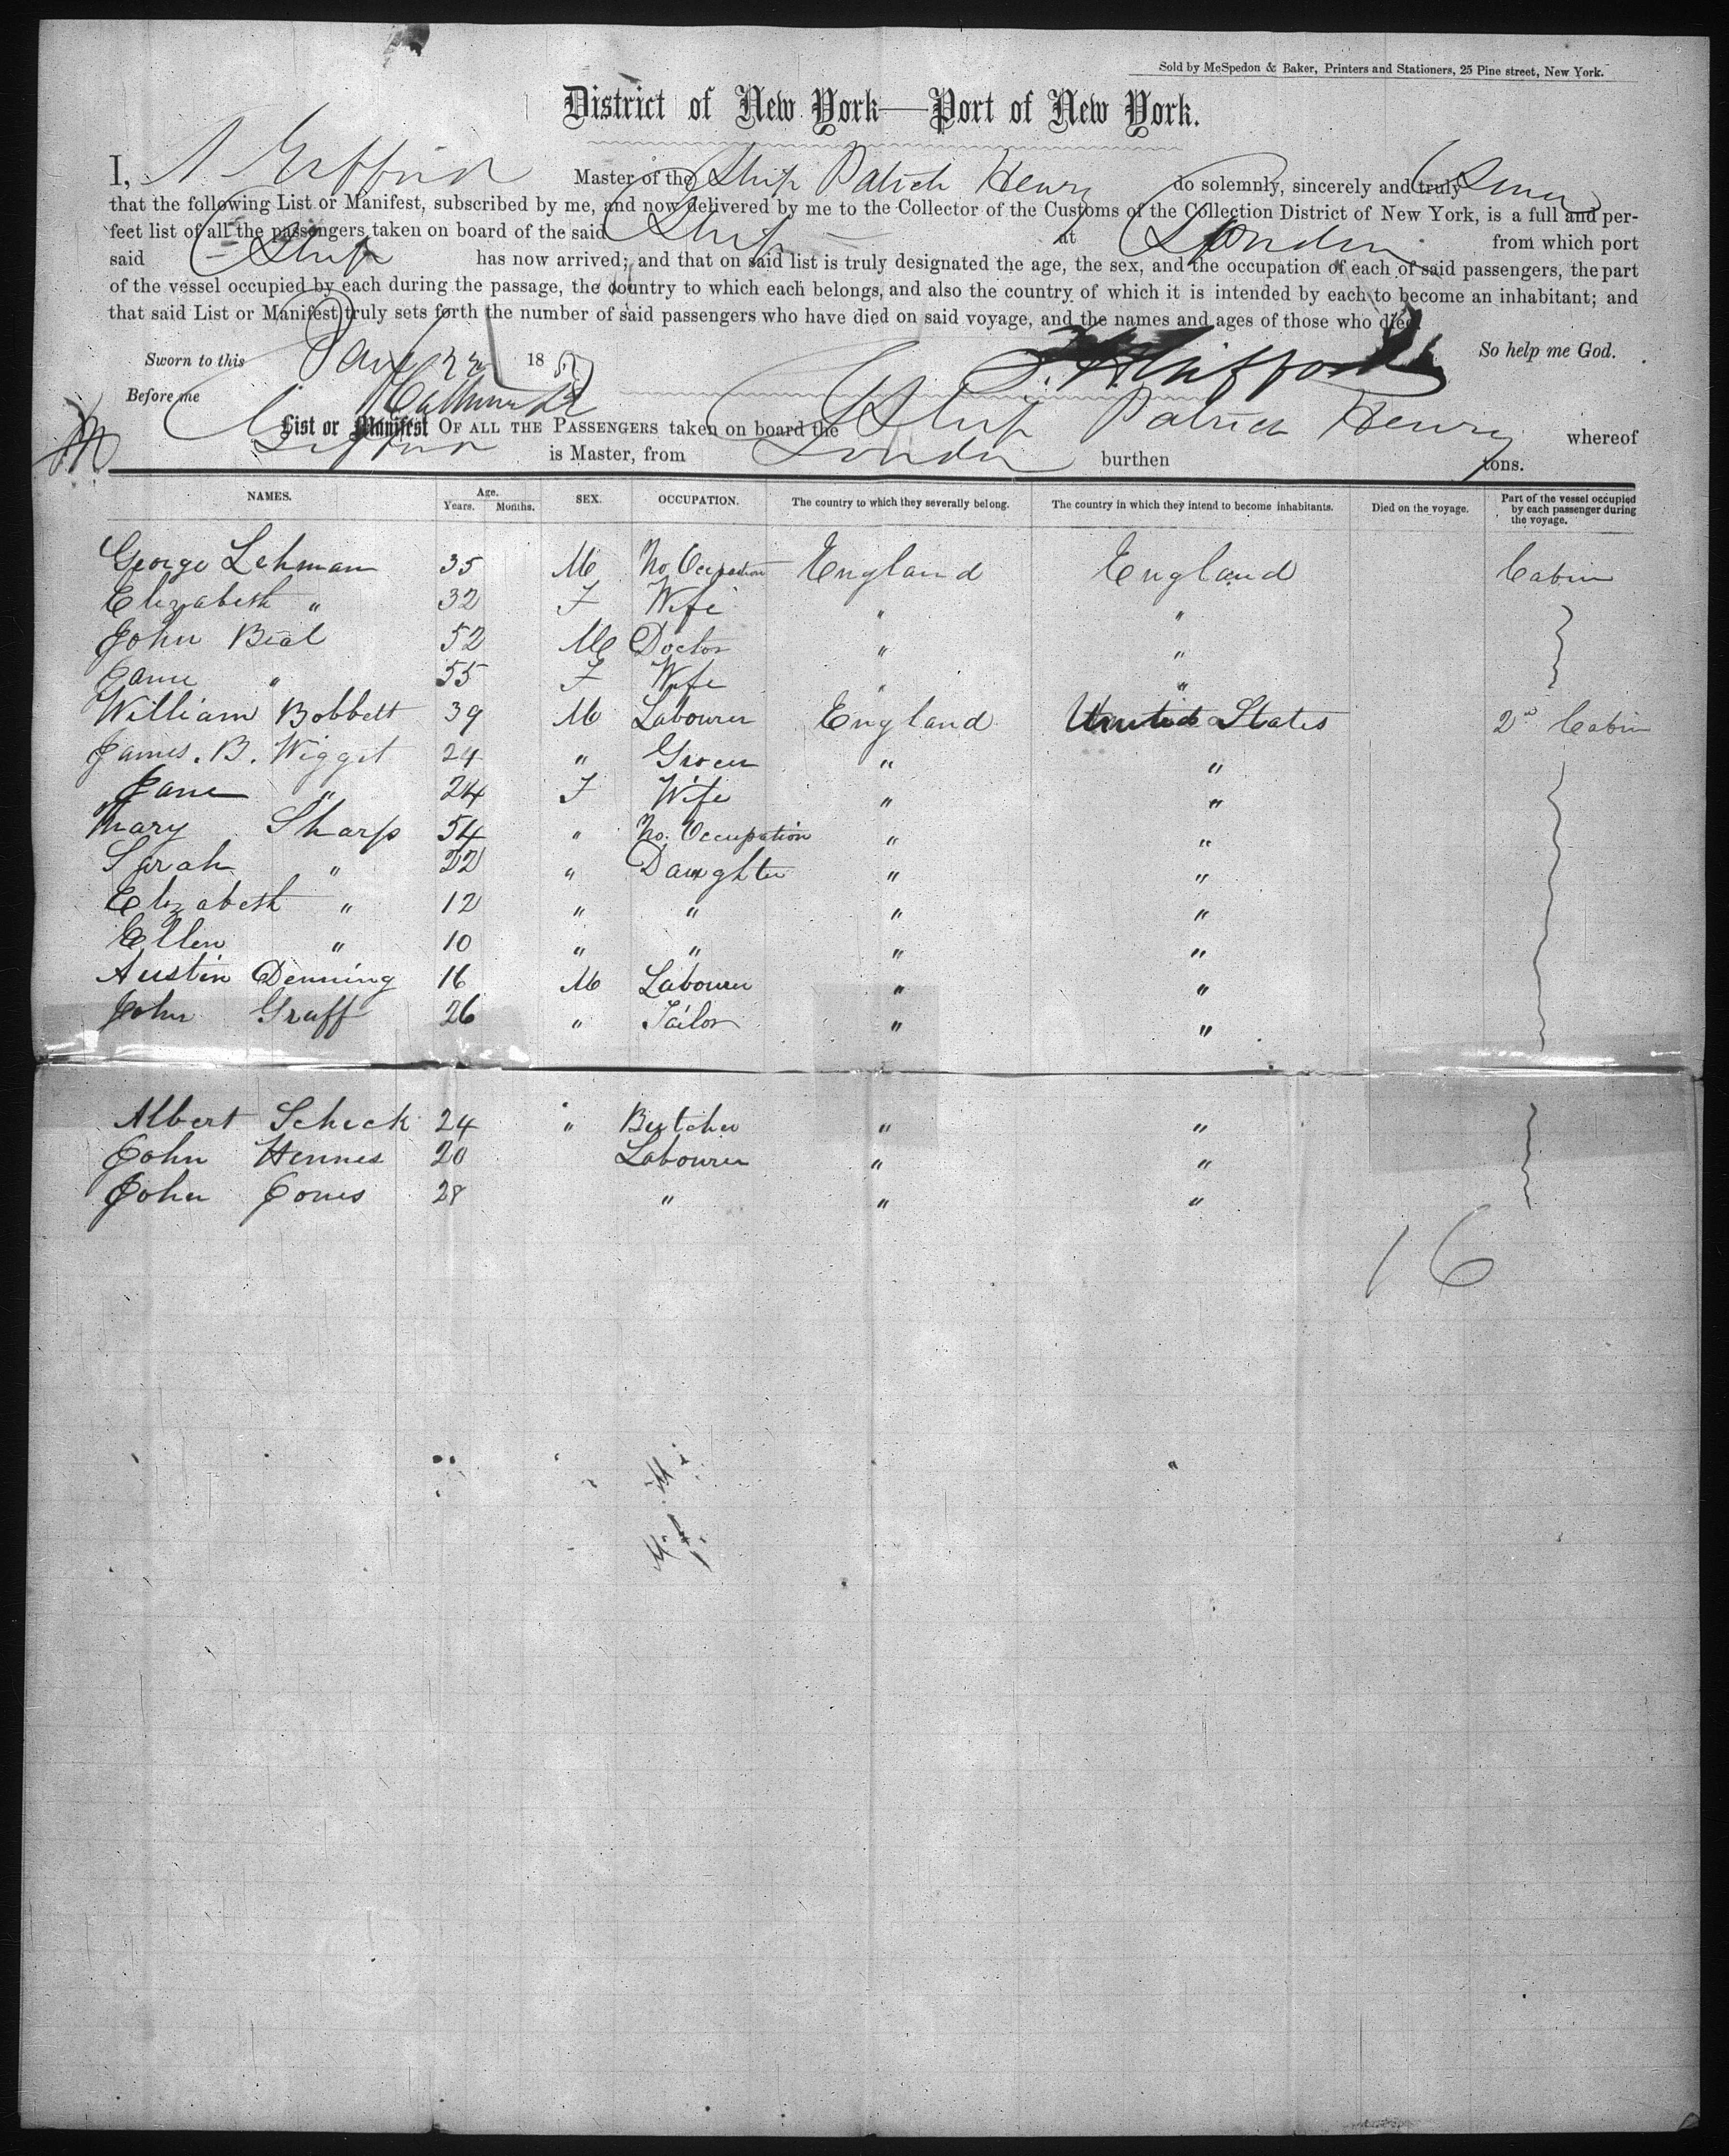 Sold by McSpedon & Baker, Printers and Stationers, 25 Pine street, New York.
District of New York—Port of New York.
I, Master of the Ship Patrick Henry do solemnly, sincerely and truly Swear
that the following List or Manifest, subscribed by me, and now delivered by me to the Collector of the Customs of the Collection District of New York, is a full and per-
feet list of all the passengers taken on board of the said Ship at London from which port
said Ship has now arrived; and that on said list is truly designated the age, the sex, and the occupation of each of said passengers, the part
of the vessel occupied by each during the passage, the country to which each belongs, and also the country of which it is intended by each to become an inhabitant; and
that said List or Manifest truly sets forth the number of said passengers who have died on said voyage, and the names and ages of those who died.
Sworn to this 18 So help me God.
Before me
List or Manifest OF ALL THE PASSENGERS taken on board the Ship Patrick Henry whereof
is Master, from London burthen tons.
NAMES. Age. Years. Months. SEX. OCCUPATION. The country to which they severally belong. The country in which they intend to become inhabitants. Died on the voyage. Part of the vessel occupied by each passenger during the voyage.
George Lehman 35 M No Occupation England England Cabin
Elizabeth " 32 F Wife " "
John Beal 52 M Doctor " "
Jane " 55 F Wife " "
William Bobbett 39 M Labourer England United States 2nd Cabin
James. B. Wigget 24 " Grocer " "
Jane " 24 F Wife " "
Mary Sharp 54 " No. Occupation " "
Sarah " 22 " Daughter " "
Elizabeth " 12 " " " "
Ellen " 10 " " " "
Austin Denning 16 M Labourer " "
John Graff 26 " Tailor " "
Albert Scheck 24 " Butcher " "
John Hennes 20 Labourer " "
John Jones 28 " " "
16